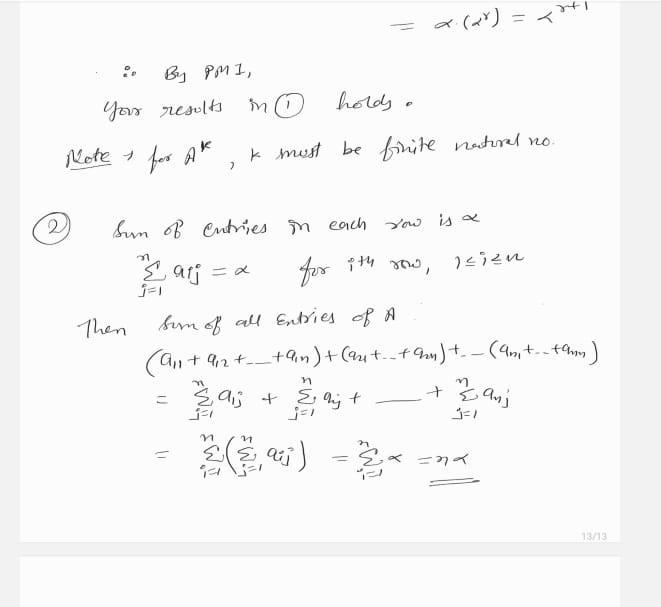 = α.(α^r) = α^{r+1}
∴ By PMI,
Your results in ① holds.
Note → for A^k, k must be finite natural no.
② Sum of entries in each row is α
\sum_{j=1}^{n} a_{ij} = α for ith row, 1≤i≤n
Then Sum of all Entries of A
(a_{11} + a_{12} + __ + a_{1n}) + (a_{21} + -- + a_{2n}) + -- (a_{n1} + -- + a_{nn})
= \sum_{j=1}^{n} a_{1j} + \sum_{j=1}^{n} a_{2j} + —— + \sum_{j=1}^{n} a_{nj}
= \sum_{i=1}^{n} (\sum_{j=1}^{n} a_{ij}) = \sum_{i=1}^{n} α = nα
13/13